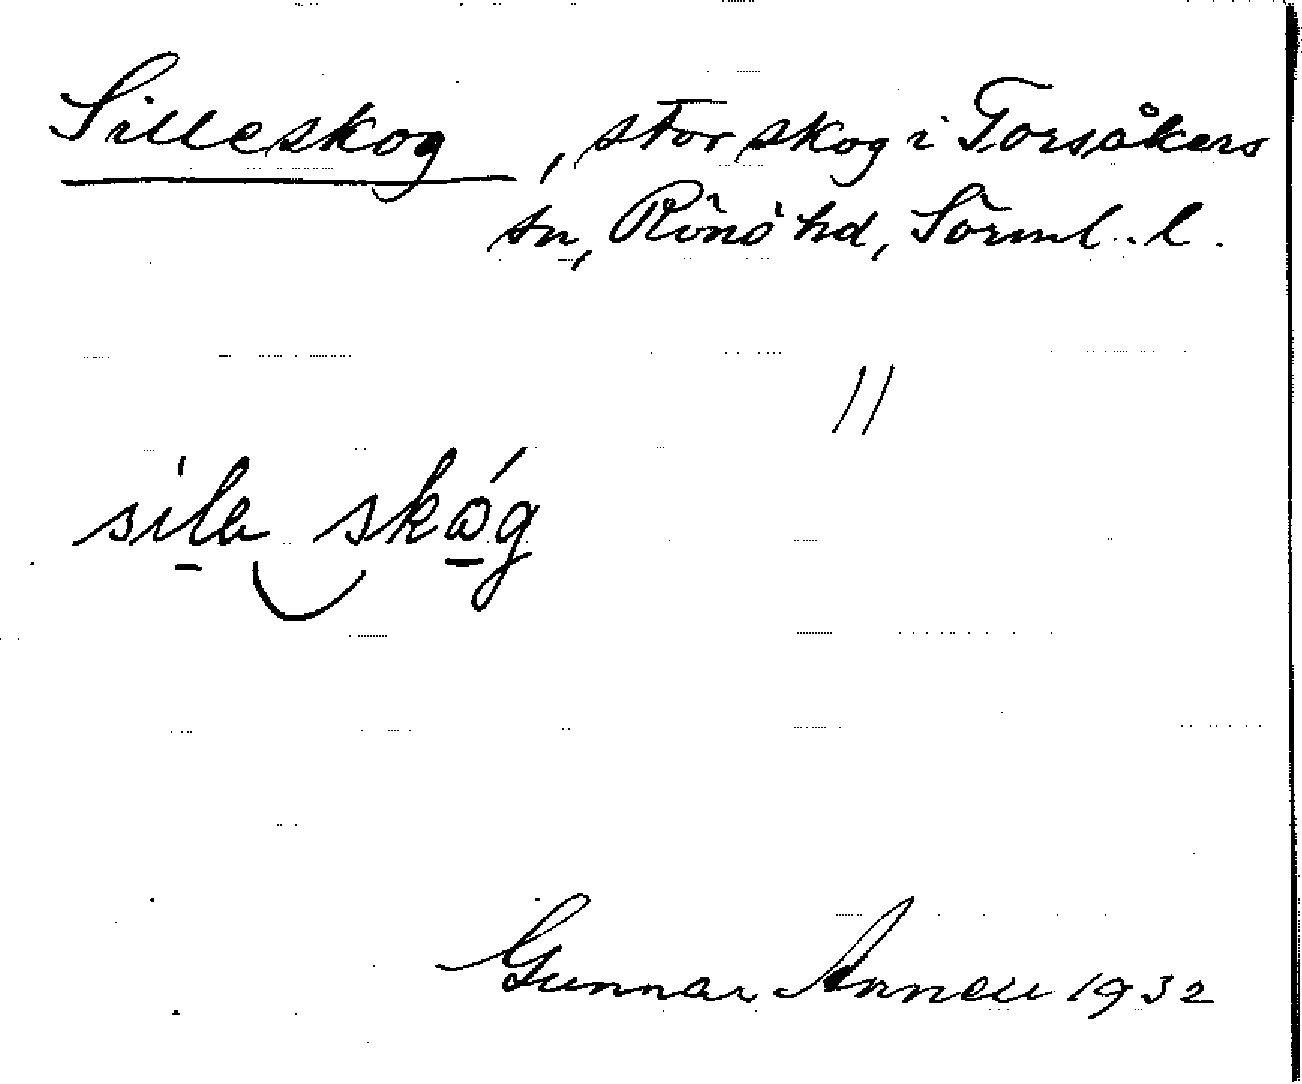 Silleskog, stor skog i Torsåkers
sn, Rönö hd, Sörml. l.
//
sila skóg
Gunnar Annell 1932